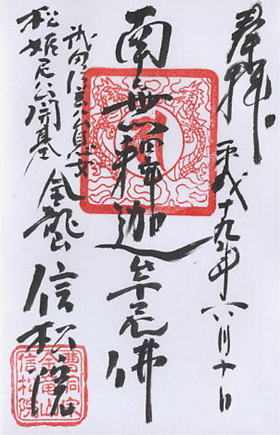 奉拝
平成十九年
月十日
南無釋迦牟尼佛
武田信玄公息女
松姫尼公開基
金龍山
信松院
曹洞宗
金龍山
信松院